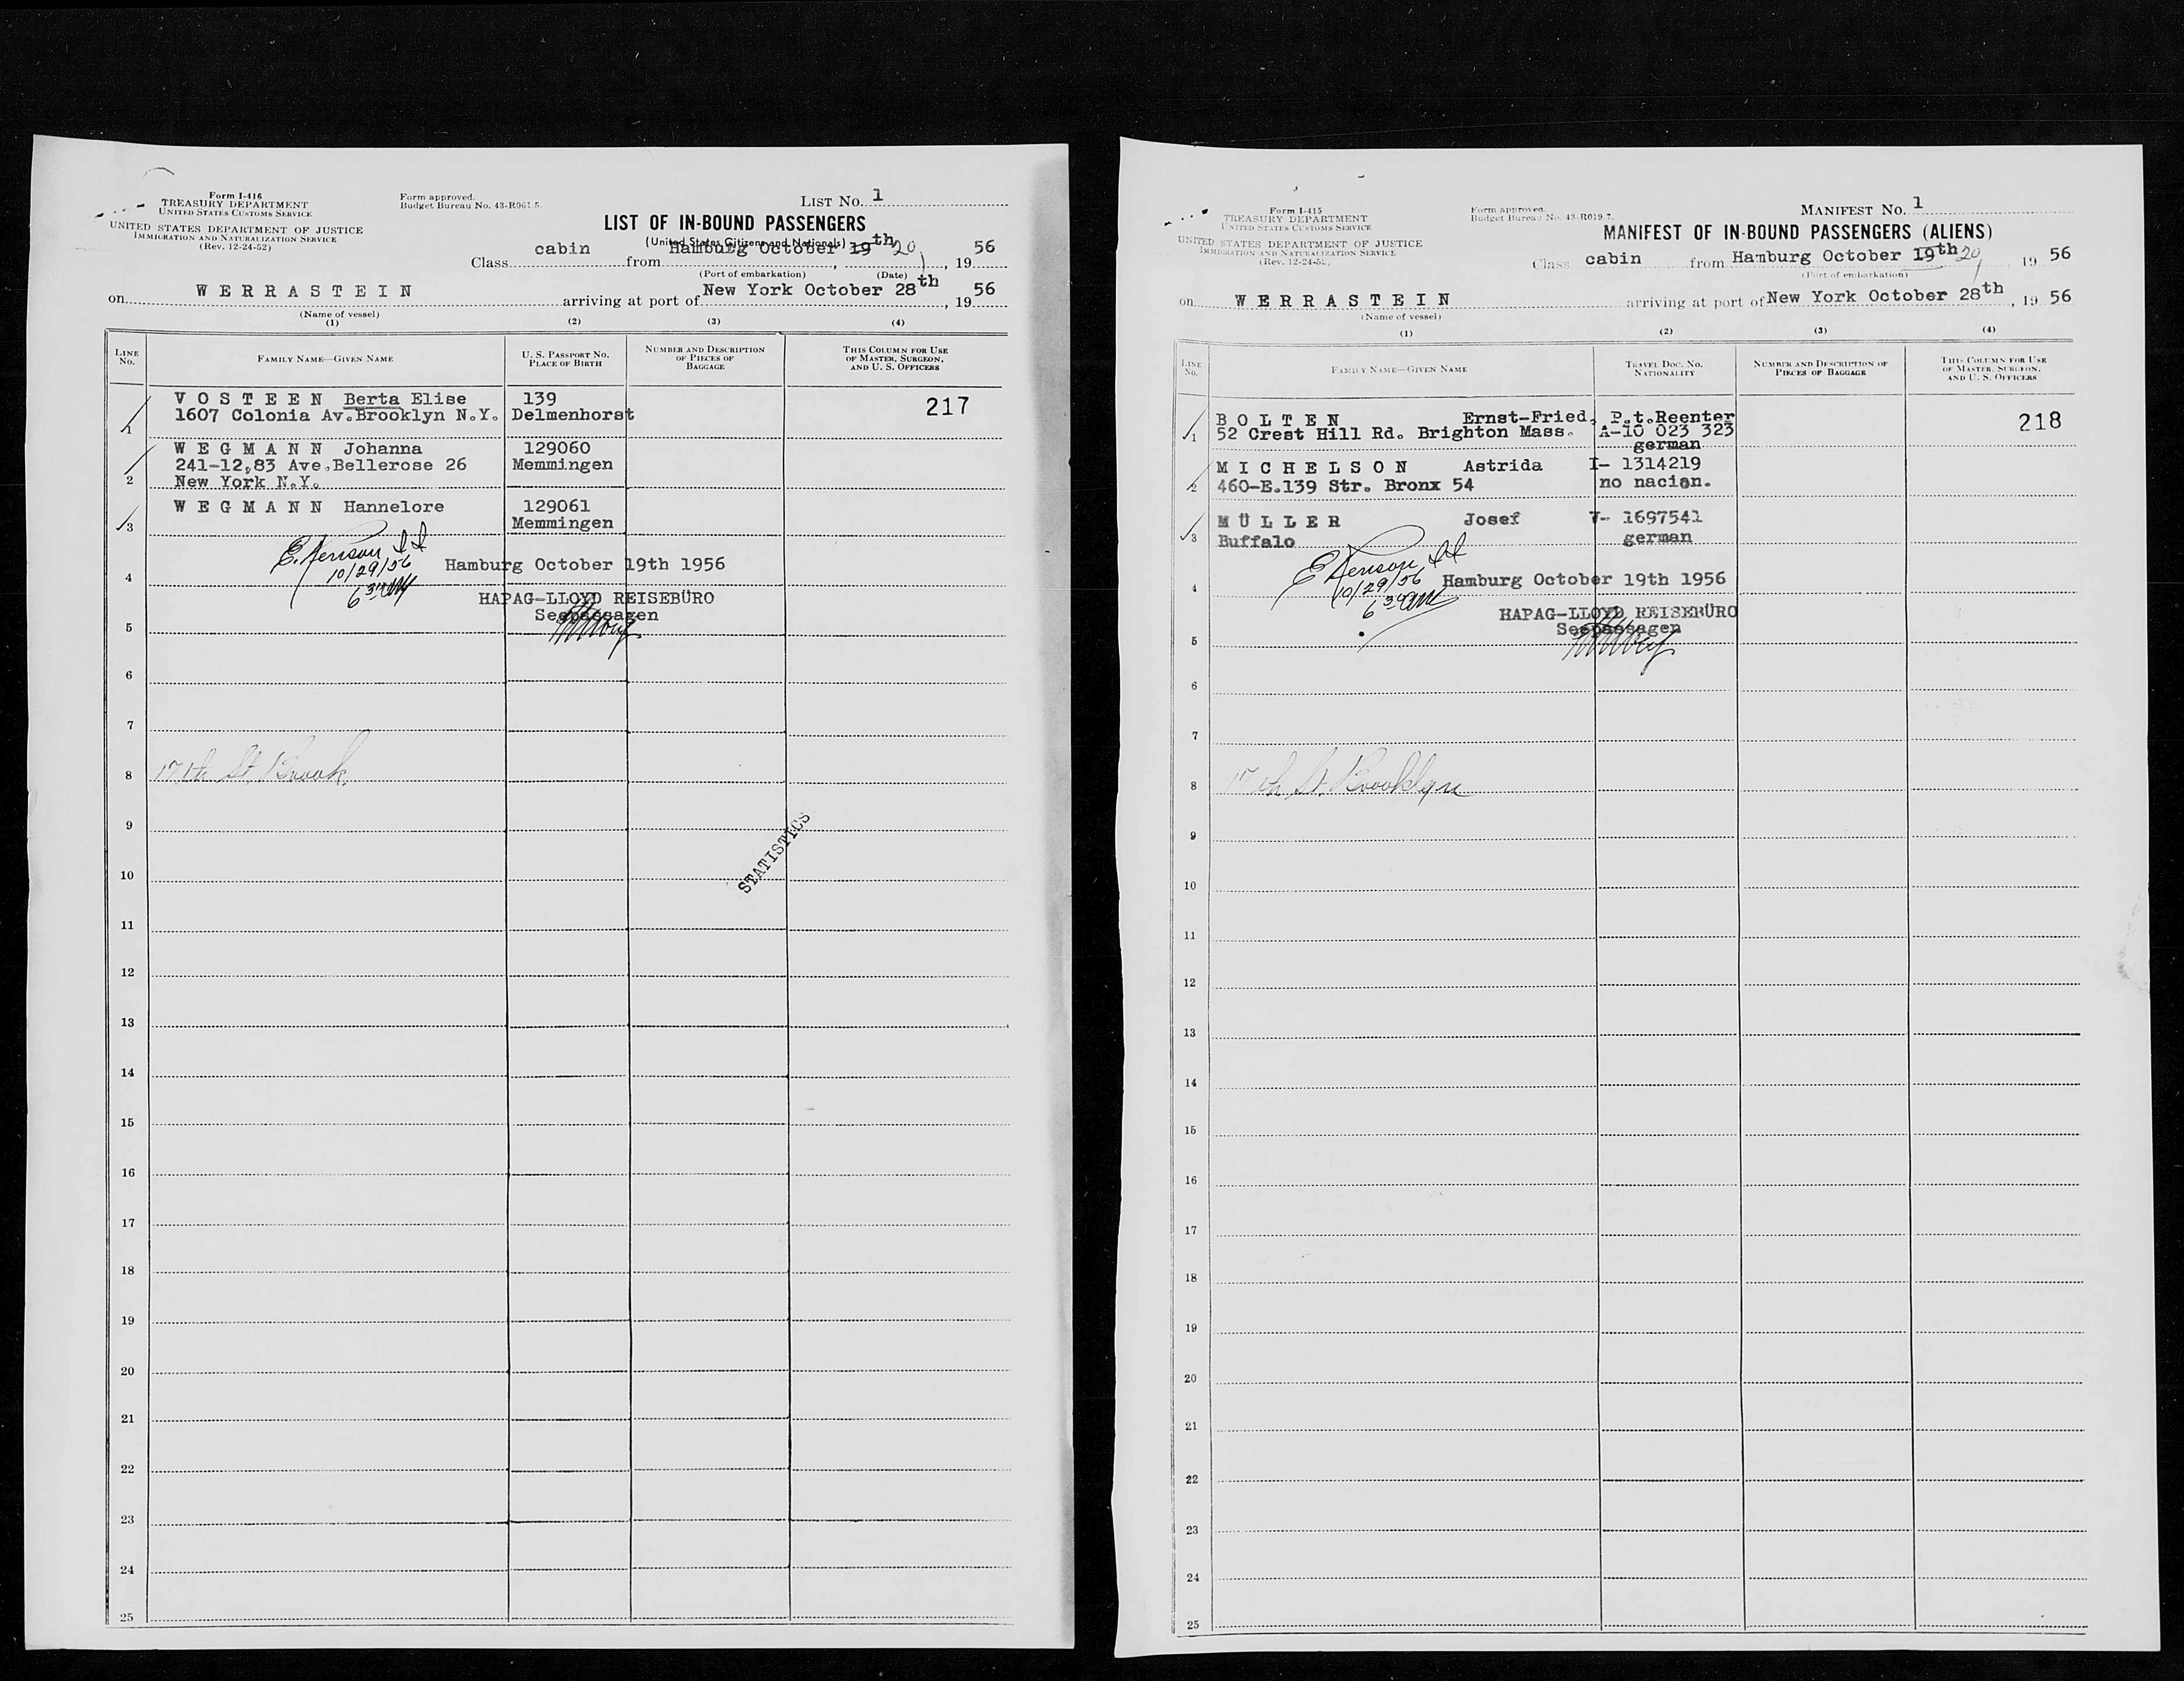 Form I-416
TREASURY DEPARTMENT
UNITED STATES CUSTOMS SERVICE
UNITED STATES DEPARTMENT OF JUSTICE
IMMIGRATION AND NATURALIZATION SERVICE
(Rev. 12-24-52)
Form approved.
Budget Bureau No. 43-R061.5.
LIST No. 1
LIST OF IN-BOUND PASSENGERS
(United States Citizens and Nationals)
Class cabin from Hamburg October 19th 20, 1956
(Port of embarkation) (Date)
on WERRASTEIN arriving at port of New York October 28th, 1956
(Name of vessel)
(1) (2) (3) (4)
LINE No. FAMILY NAME—GIVEN NAME U. S. PASSPORT NO. PLACE OF BIRTH NUMBER AND DESCRIPTION OF PIECES OF BAGGAGE THIS COLUMN FOR USE OF MASTER, SURGEON, AND U. S. OFFICERS
1 VOSTEEN Berta Elise 139 217
1607 Colonia Av.Brooklyn N.Y. Delmenhorst
2 WEGMANN Johanna 129060
241-12,83 Ave.Bellerose 26 Memmingen
New York N.Y.
3 WEGMANN Hannelore 129061
Memmingen
10/29/56
4 Hamburg October 19th 1956
HAPAG-LLOYD REISEBÜRO
5 Seepassagen
6
7
8 17th St Brook.
9
STATISTICS
10
11
12
13
14
15
16
17
18
19
20
21
22
23
24
25
Form I-415
TREASURY DEPARTMENT
UNITED STATES CUSTOMS SERVICE
UNITED STATES DEPARTMENT OF JUSTICE
IMMIGRATION AND NATURALIZATION SERVICE
(Rev. 12-24-52)
Form approved.
Budget Bureau No. 43-R019.7.
MANIFEST No. 1
MANIFEST OF IN-BOUND PASSENGERS (ALIENS)
Class cabin from Hamburg October 19th 20, 1956
(Port of embarkation)
on WERRASTEIN arriving at port of New York October 28th, 1956
(Name of vessel)
(1) (2) (3) (4)
LINE No. FAMILY NAME—GIVEN NAME TRAVEL DOC. NO. NATIONALITY NUMBER AND DESCRIPTION OF PIECES OF BAGGAGE THIS COLUMN FOR USE OF MASTER, SURGEON, AND U. S. OFFICERS
1 BOLTEN Ernst-Fried. P.t.Reenter 218
52 Crest Hill Rd. Brighton Mass. A-10 023 323
german
2 MICHELSON Astrida I- 1314219
460-E.139 Str. Bronx 54 no nacion.
3 MÜLLER Josef 1697541
Buffalo german
10/29/56
4 Hamburg October 19th 1956
HAPAG-LLOYD REISEBÜRO
5 Seepassagen
6
7
8 17th St. Brooklyn
9
10
11
12
13
14
15
16
17
18
19
20
21
22
23
24
25